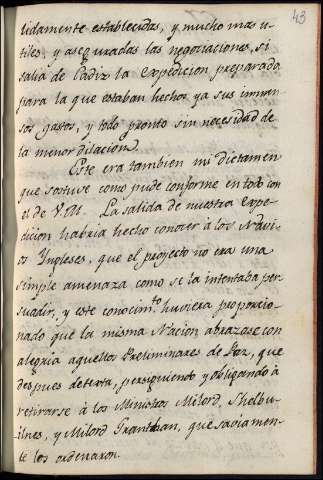 43
lidamente establecidas, y mucho mas u-
tiles, y aseguradas las negociaciones, si
salia de Cadiz la Expedicion preparada
para la que estaban hechos ya sus inmen-
sos gastos, y todo pronto sin necesidad de
la menor dilacion.
Este era tambien mi dictamen
que sostuve como pude conforme en todo con
el de V.M. La salida de nuestra Expe-
dicion habria hecho conocer à los Navi-
os Yngleses, que el proyecto no era una
simple amenaza como se la intentaba per-
suadir, y este conocim.to huviera proporcio-
nado que la misma Nacion abrazase con
alegria aquellos Preliminares de Paz, que
despues detesta, persiguiendo y obligando à
retirarse à los Ministros Milord, Shelbu-
ilnes, y Milord Grantban, que saviamen-
te los ordenaron.